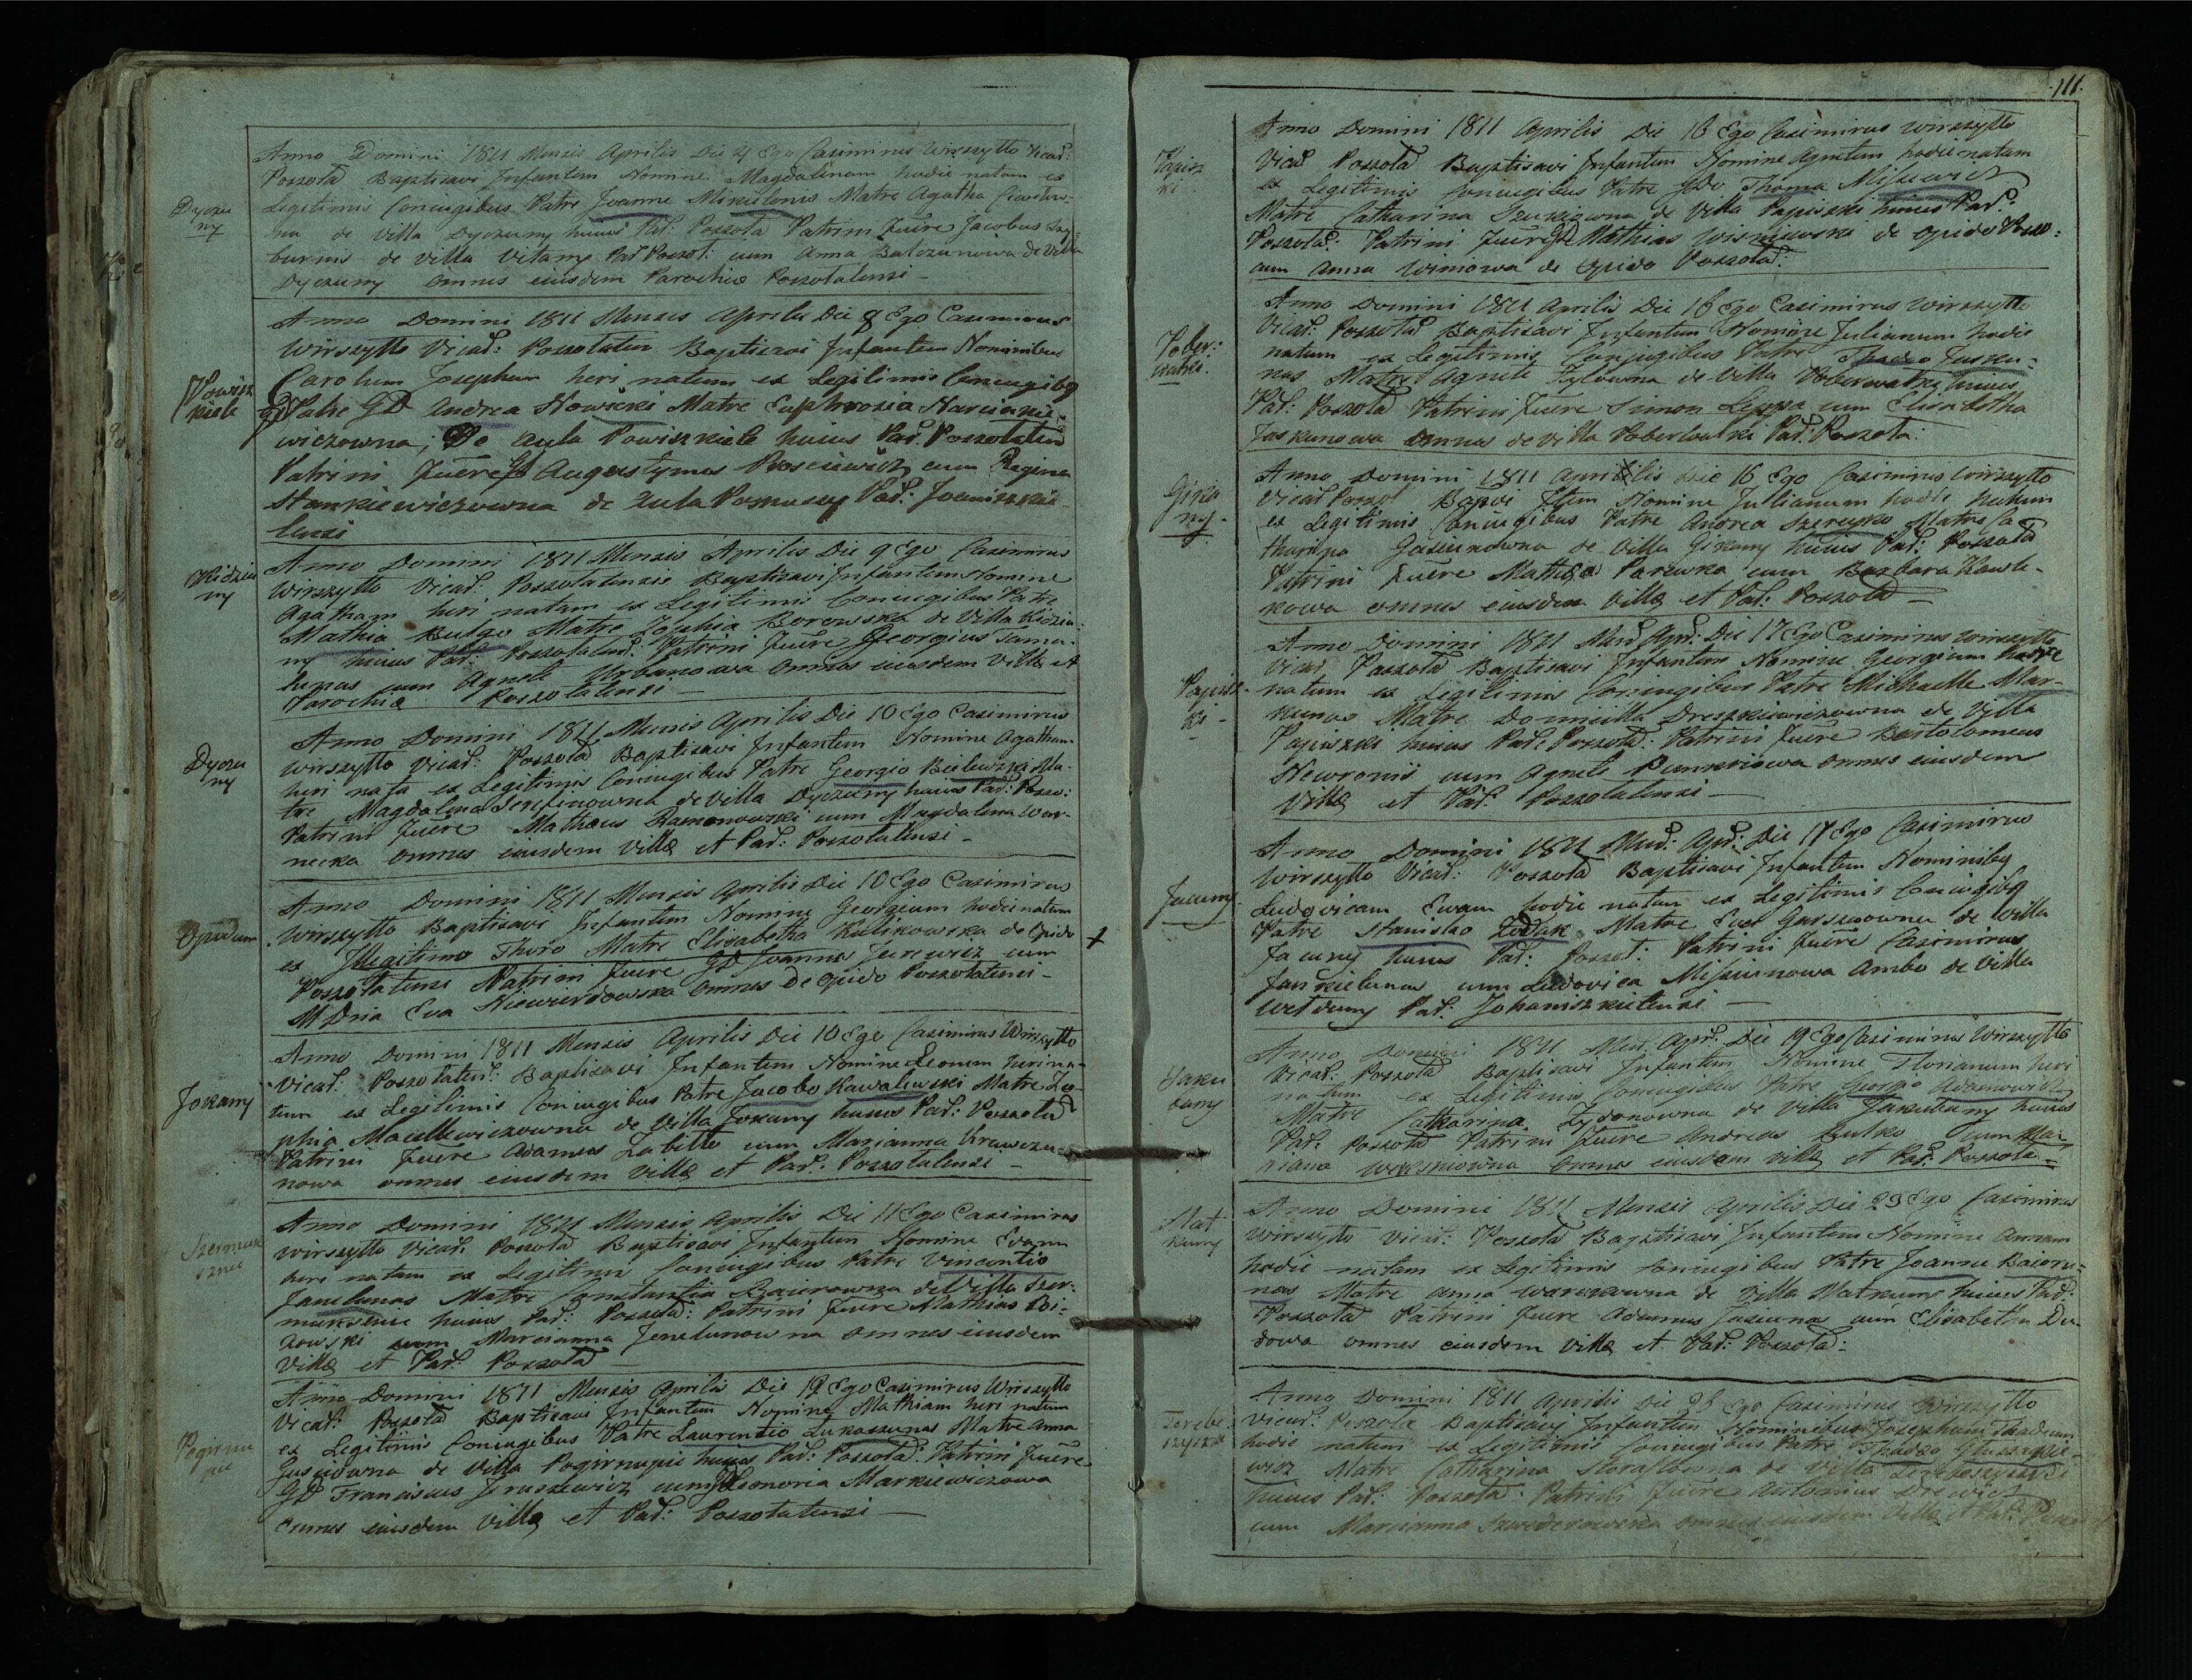 Dyczu
ny
Anno Domini 1811 Mensis Aprilis Die 4 Ego Casimirus Wirszytto Vicar:
Poszola Baptisavi Infantem Nomine Magdalenam hodie natam ex
Legitimis Coniugibus Patre Joanne Mikielonis Matre Agatha
na de Villa Dyczuny huius Par: Poszola Patrini fuere Jacobus
de Villa Vitany Par Poszol: cum Anna Balczunowa de Villa
Dyczuny omnes eiusdem Parochiæ Poszolatensi
Powisz
kiele
Anno Domini 1811 Mensis Aprilis Die 8 Ego Casimirus
Wirszytto Vicar: Poszolaten Baptisavi Infantem Nominibus
Carolum Josephum heri natum ex Legitimis Coniugibq
Patre GD Andrea Nowicki Matre Euphrosia
wiczowna, De aula Powiszkiele huius Par. Poszolaten
Patrini fuere GD Augustynus cum Regina
Stankiewiczowna de Aula Pomuszy Par: Joaniszkie-
lensi
Kidziu
ny
Anno Domini 1811 Mensis Aprilis Die 9 Ego Casimirus
Wirszytto Vicar: Poszolatensis Baptisavi Infantem Nomine
Agatham heri natam ex Legitimis Coniugibus Patre
Mathia Butgo Matre Zophia Borowska de Villa Kidziu-
ny huius Par: Poszolatens: Patrini fuere Georgius Samu-
lenas cum Agnete Urbanowa omnes eiusdem Villæ et
Parochiæ Poszolatensi
Dyczu
ny
Anno Domini 1811 Mensis Aprilis Die 10 Ego Casimirus
Wirszytto Vicar: Poszola Baptisavi Infantem Nomine Agatham
heri nata ex Legitimis Coniugibus Patre Georgio Ma-
tre Magdalena de Villa Dyczuny huius Par: Poszo:
Patrini fuere Matheus Ramanowski cum Magdalena War-
necka omnes eiusdem Villæ et Par: Poszolatensi
Opidum
Anno Domini 1811 Mensis Aprilis Die 10 Ego Casimirus
Wirszytto Baptisavi Infantem Nomine Georgium hodie natum
ex Illegitimo Thoro Matre Elisabetha Kulikowska de Opido
Poszolatensi Patrini fuere GD Joannes Jurewicz cum
M Dna Eva Niewierdowska omnes De Opido Poszolatensi
Jozany
Anno Domini 1811 Mensis Aprilis Die 10 Ego Casimirus Wirszytto
Vicar: Poszolaten: Baptisavi Infantem Nomine Leonem heri na-
tum ex Legitimis Coniugibus Patre Jacobo Kawalewski Matre Zo-
phia Macellewiczowna de Villa Jozany huius Par: Poszola
Patrini fuere Adamus Zabitto cum Marianna Krawczu-
nowa omnes eiusdem Villæ et Par: Poszolatensi
Anno Domini 1811 Mensis Aprilis Die 11 Ego Casimirus
Wirszytto Vicar: Poszola Baptisavi Infantem Nomine Evam
heri natam ex Legitimis Coniugibus Patre Vincentio
Janelunas Matre Constantia de Villa Szer-
huius Par: Poszola: Patrini fuere Mathias
cum Marcianna Jenelunowna omnes eiusdem
Villæ et Par: Poszola
Anno Domini 1811 Mensis Aprilis Die 12 Ego Casimirus Wirszytto
Vicar: Poszola Baptisavi Infantem Nomine Mathiam heri natum
ex Legitimis Coniugibus Patre Laurentio Lukoszunas Matre Anna
de Villa Pogirnupie huius Par: Poszola: Patrini fuere
GD Franciscus Jruszewicz cum Honoria Markiewiczowa
omnes eiusdem Villæ et Par: Poszolatensi
111.
Papisz
ki
Anno Domini 1811 Aprilis Die 16 Ego Casimirus Wirszytto
Vicar Poszola Baptisavi Infantem Nomine Agnetem hodie natam
ex Legitimis Coniugibus Patre Thoma Misiewicz
Matre Catharina de Villa Papiszki huius Par:
Poszola: Patrini fuere GD Mathias Wisniewski de Opido Poszo:
cum Anna Winiowa de Opido Poszola:
Pober:
walki.
Anno Domini 1811 Aprilis Die 16 Ego Casimirus Wirszytto
Vicar: Poszola Baptisavi Infantem Nomine Julianum hodie
natum ex Legitimis Conjugibus Patre Thadeo Juszku-
nas Matre Agnete Tylowna de Villa Poberwalki huius
Par: Poszola Patrini fuere Simon Leppa cum Elisabetha
Jaskunowa omnes de Villa Poberwalki Par: Poszola:
Gikia
ny.
Anno Domini 1811 Aprilis Die 16 Ego Casimirus Wirszytto
Vicar Poszol Bapvi Ftem Nomine Julianum hodie natum
ex Legitimis Coniugibus Patre Andrea Matre Ca
tharina Gasiunowna de Villa Gikany huius Par: Poszola
Patrini fuere Matheas Parewka cum Barbara Kawle-
kowa omnes eiusdem Villæ et Par: Poszola
Papisz-
ki
Anno Domini 1811 Mens Apr: Die 17 Ego Casimirus Wirszytto
Vicar Poszola Baptisavi Infantem Nomine Georgium hodie
natum ex Legitimis Coniugibus Patre Michaelle Mar-
kunas Matre Domicilla Dreszkiewiczowna de Villa
Papiszki huius Par: Poszola: Patrini fuere Bartolomeus
Newronis cum Agnete Punkriowa omnes eiusdem
Villæ et Par: Poszolatensi
Jacuny.
Anno Domini 1811 Mens: Apr: Die 17 Ego Casimirus
Wirszytto Vicar: Poszola Baptisavi Infantem Nominibq
Ludovicam Evam hodie natam ex Legitimis Coniugibq
Patre Stanislao Zodak Matre Eva de Villa
Jacuny huius Par: Poszol: Patrini fuere Casimirus
Jankielunas cum Ludovica Misiunowa Ambo de Villa
Par: Johaniszkielensi
Jaku
buny
Anno Domini 1811 Mens. Apr: Die 19 Ego Casimirus Wirszytto
Vicar: Poszola Baptisavi Infantem Nomine Florianum heri
natum ex Legitimis Coniugibus Patre Georgio Adamowicz
Matre Catharina de Villa Jakubuny huius
Par: Poszola Patrini fuere Andreas Butko cum Mar
riana omnes eiusdem Villæ et Par: Poszola
Mat
kuny
Anno Domini 1811 Mensis Aprilis Die 23 Ego Casimirus
Wirszytto Vicar: Poszola Baptisavi Infantem Nomine Annam
hodie natam ex Legitimis Coniugibus Patre Joanne Baioru-
nas Matre Anna de Villa Matkuny huius Par:
Poszola Patrini fuere Adamus Jasiunas cum Elisabetha Du
dowa omnes eiusdem Villæ et Par: Poszola:
Anno Domini 1811 Aprilis Die Ego Casimirus Wirszytto
Vicar: Poszola Baptisavi Infantem Nominibus Josephum Thadeum
hodie natum ex Legitimis Coniugibus Patre Thadeo
wicz Matre Catharina de Villa
huius Par: Poszola: Patrini fuere Antonius Drewicz
cum Marianna omnes eiusdem Villæ et Par: